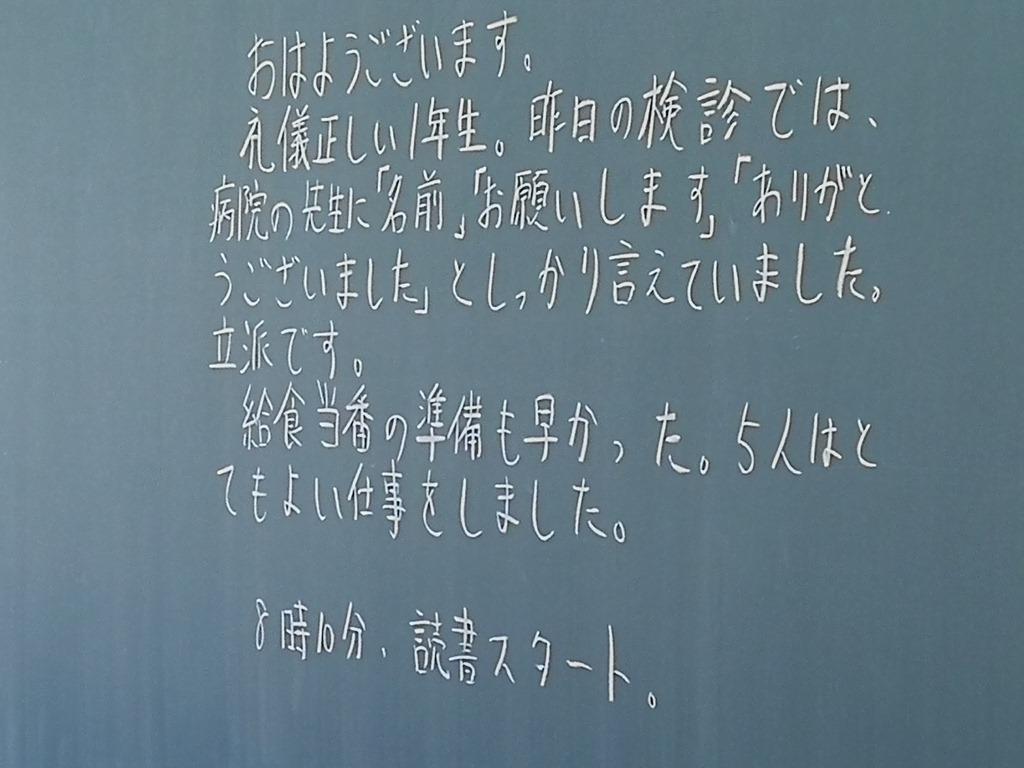 おはようございます。
礼儀正しい1年生。昨日の検診では、
病院の先生に「名前」「お願いします」「ありがと
うございました」としっかり言えていました。
立派です。
給食当番の準備も早かった。5人はと
てもよい仕事をしました。
8時10分、読書スタート。